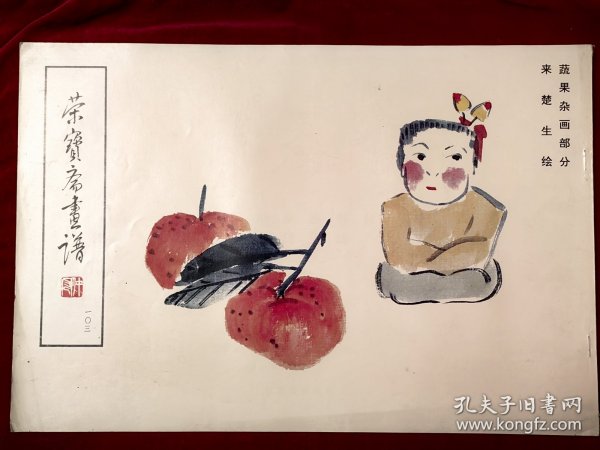 蔬果杂画部分
来楚生绘
荣寶斋畫谱
一〇三
孔夫子旧書网
www.kongfz.com